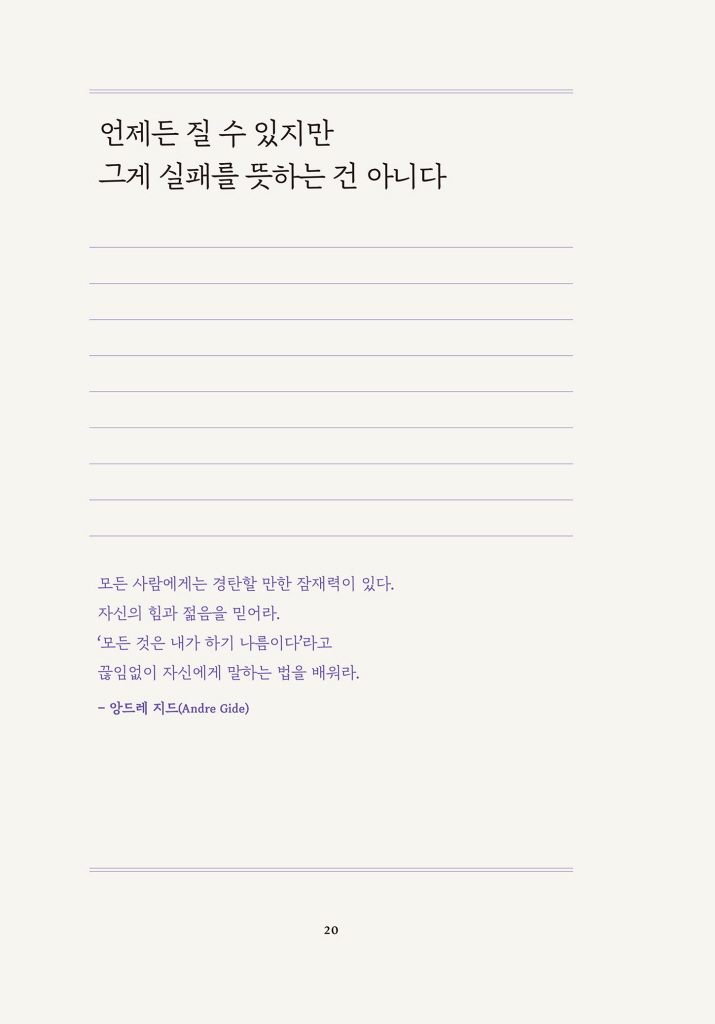 언제든 질 수 있지만
그게 실패를 뜻하는 건 아니다
모든 사람에게는 경탄할 만한 잠재력이 있다.
자신의 힘과 젊음을 믿어라.
‘모든 것은 내가 하기 나름이다’라고
끊임없이 자신에게 말하는 법을 배워라.
– 앙드레 지드(Andre Gide)
20